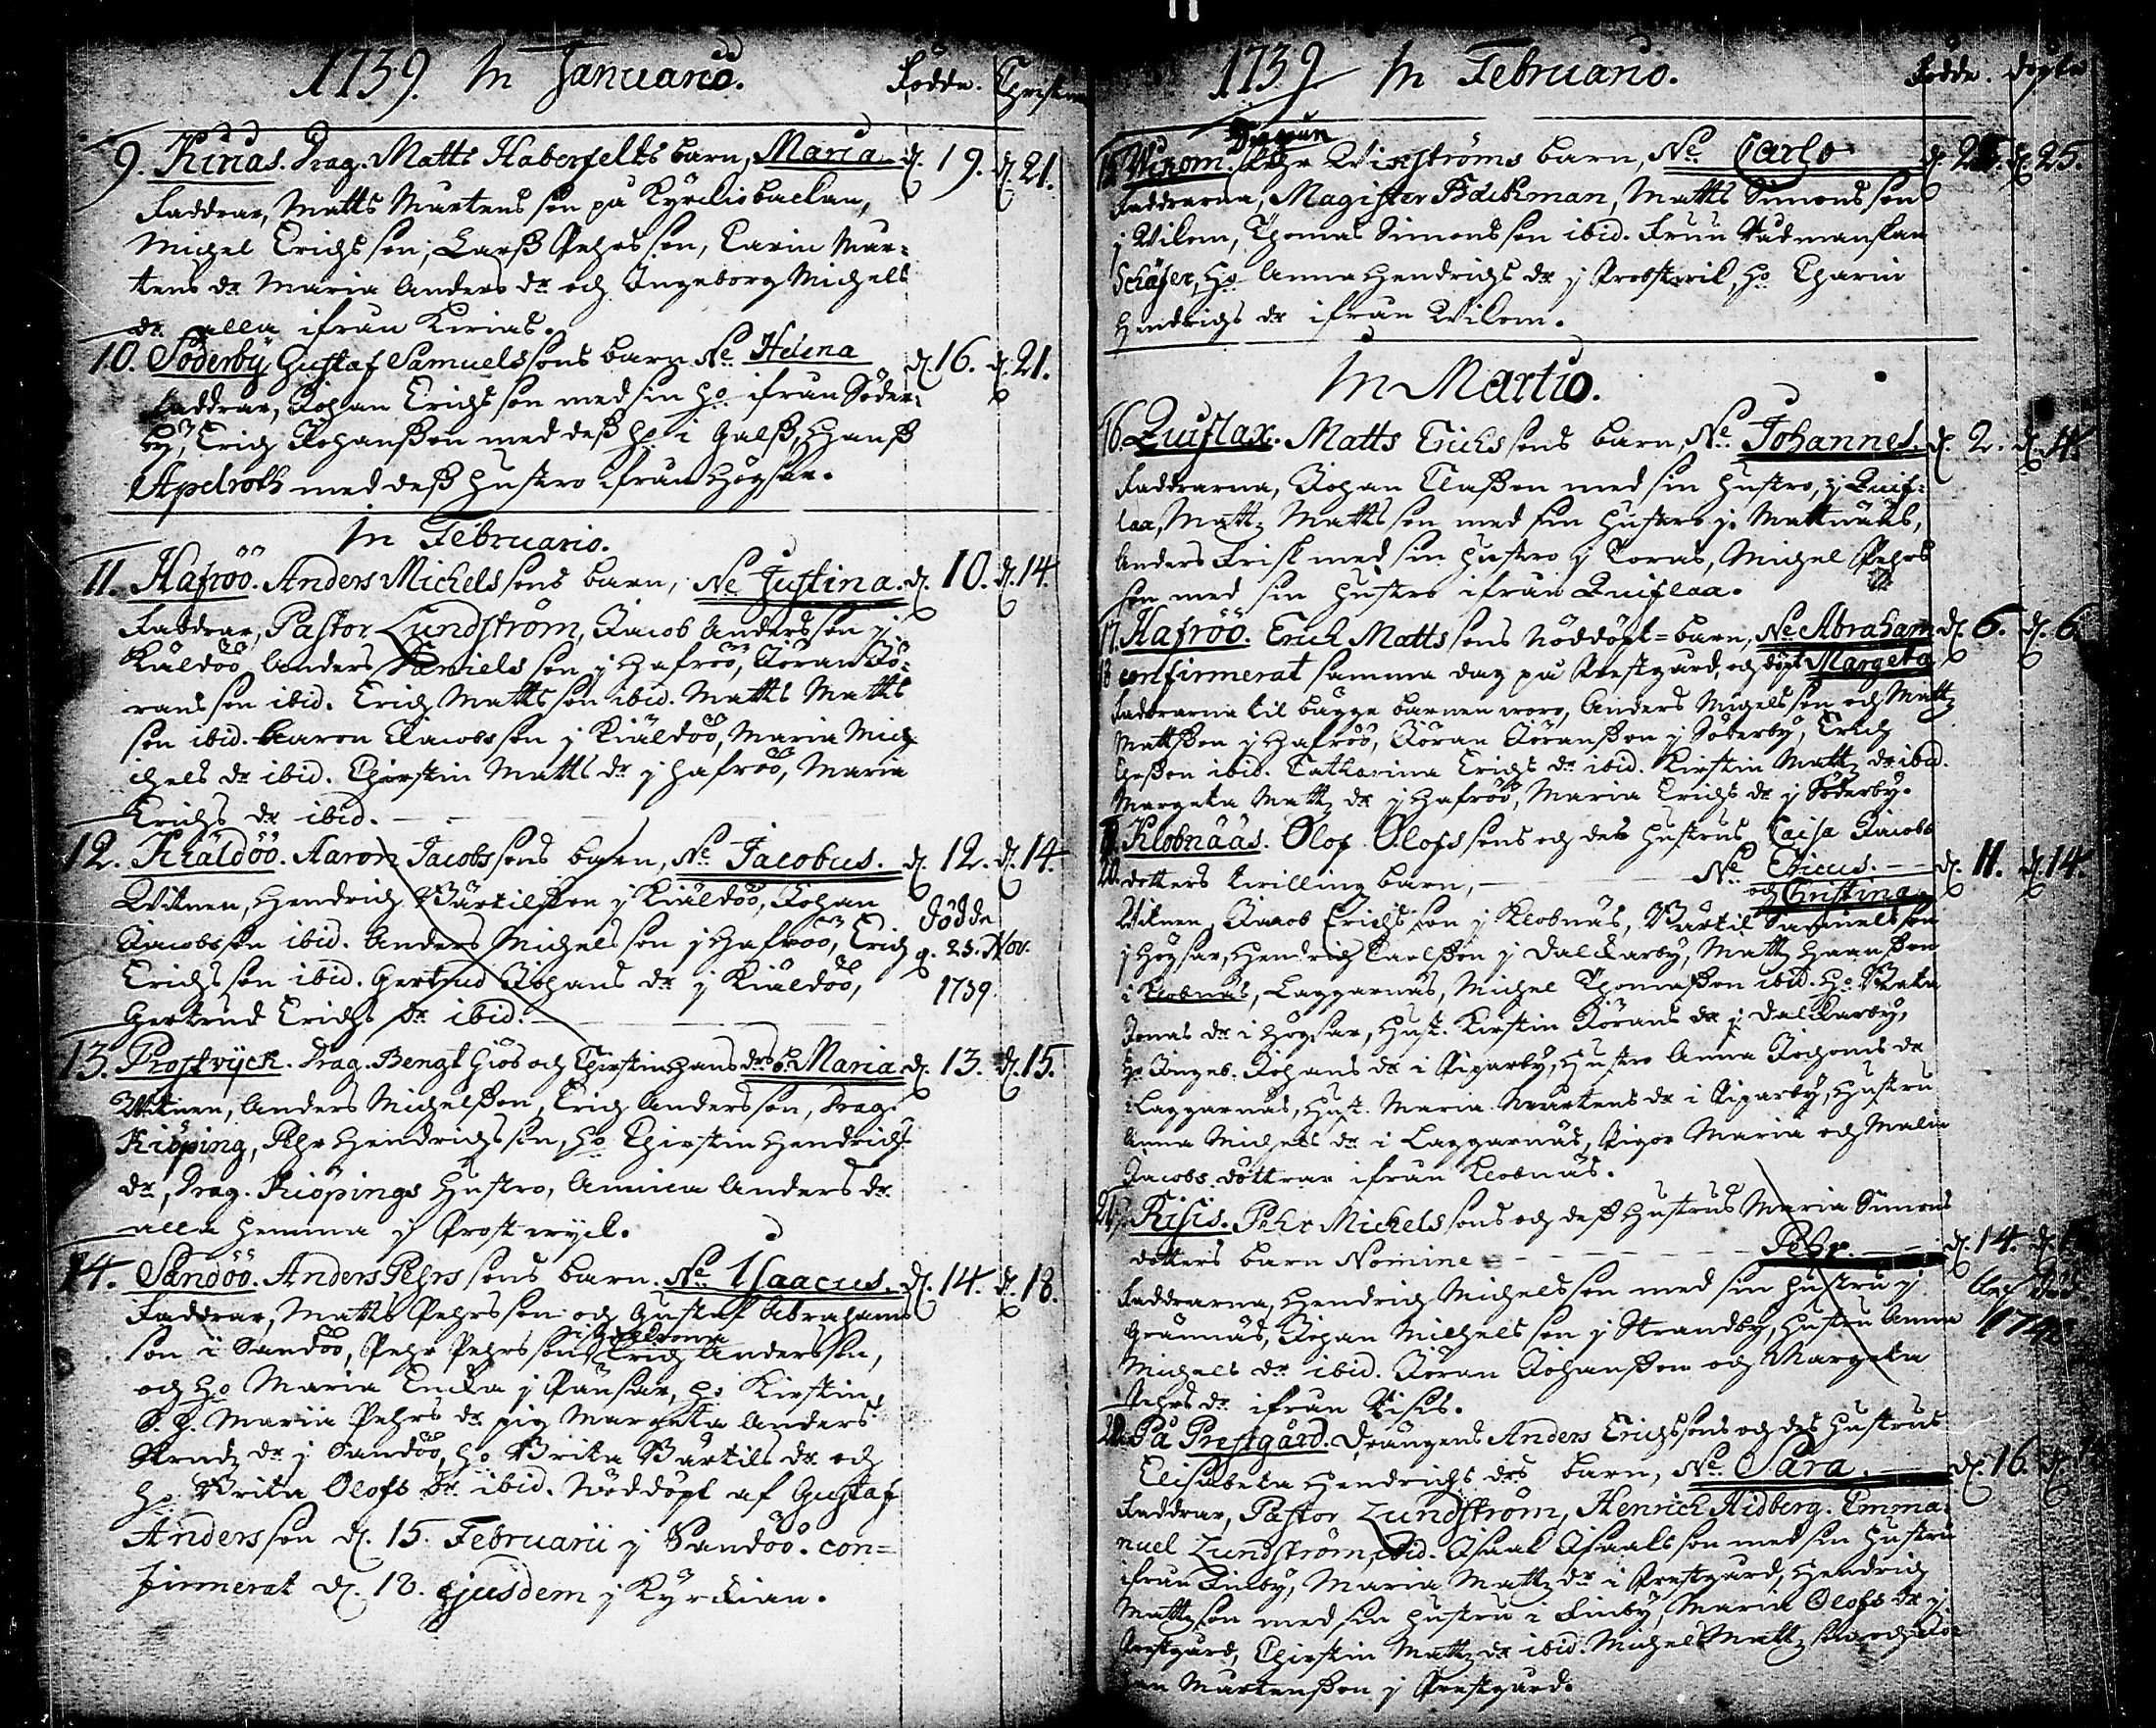 1739. In Januario. Födde. Christn
9. Kirias. Drag. Matts Haberfelts barn, Maria. d. 19. d. 21.
Faddrar, Matts Mårtens son på Kyrckiobackan,
Michel Erichs son; Larß Pehrs son, Carin Mår=
tens dr Maria Anders dr och Ingeborg Michels
dr alla ifrån Kirias.
10. Söderby Gustaf Samuelssons barn Ne Helena d. 16. d. 21.
Faddrar, Johan Erichs son med sin ho ifrån Söder=
by, Erich Johanßon med deß ho i Galß, Hanß
Apelroth med deß hustro ifrån Högsar.
In Februario.
11. Hafröö. Anders Michelssons barn, Ne Justina. d. 10. d. 14.
Faddrar, Pastor Lundström, Jacob Anders son j
Käldöö, Anders Daniels son j Hafröö, Jöran Jö=
rans son ibid. Erich Matts son ibid. Matts Matts
son ibid. Aaron Jacobs son j Kiäldöö, Maria Mich
ichels dr ibid. Chirstin Matts dr j Hafröö, Maria
Erichs dr ibid.
12. Kiäldöö. Aaron Jacobssons barn, Ne Jacobus. d. 12. d. 14.
Witnen, Hendrich Bärtilsson j Kiäldöö, Johan
Jacobsson ibid. Anders Michels son j Hafröö, Erich
Erichs son ibid. Gertrud Johans dr j Kiäldöö,
Gertrud Erichs dr ibid.
Födde
23. Nov.
1739.
13. Prostvijck. Drag. Bengt Giös och Chirstin Hans drs b. Maria d. 13. d. 15.
Witnen, Anders Michelßon, Erich Anders son, Drag.
Kiöping, Pehr Hendrichs son, ho Chirstin Hendrichs
dr, Drag. Kiöpings hustro, Annica Anders dr
alla hemma j Prostwijck.
14. Sandöö. Anders Pehrs sons barn. Ne Isaacus. d. 14. d. 18.
Faddrar, Matts Pehrs son och Gustaf Abrahams
son i Sandöö, Pehr Pehrs son, Erich Anders son,
och ho Maria j Pänsar, ho Kirstin,
Maria Pehrs dr pig Margeta Anders
dr j Sandöö, ho Brita Bärtils dr och
ho Brita Olofs dr ibid. Nöddöpt af Gustaf
Anders son d. 15. Februarii j Sandöö. con=
firmerat d. 18. ejusdem j Kyrckian.
1739 In Februario. Födde. Döpte
Dragun
15. Wikom. Pehr Wikströms barn, Ne Carlo d. 25.
Faddrarna, Magister Bäckman, Matts Simons son
j Wikom, Thomas Simons son ibid. Frun
Schäfer, ho Anna Hendrichs dr j Prostvik, ho Charin
Hendrichs dr ifrån Wikom.
In Martio.
16. Quiflax. Matts Erichssons barn, Ne Johannes. d. 2. d. 4.
Faddrarna, Johan Claßon med sin hustro, j Quif=
lax, Matts Matts son med sin hustro j Mattnäs,
Anders Frisk med sin hustro j Toras, Michel Pehrs
son med sin hustro ifrån Quiflax.
17. Hafröö. Erich Matts sons nöddöpt=barn, Ne Abraham d. 6. d. 6.
18 confirmerat samma dag på Prestgård, och döpt Margeta
Faddrarna til bägge barnen woro, Anders Michels son och Matts
Mattsson j Hafröö, Jöran Jöranßon j Söderby, Erich
ibid. Catharina Erichs dr ibid. Kirstin Matts dr ibid.
Margeta Matts dr j Hafröö, Maria Erichs dr j Söderby.
19. Klobnääs. Olof Olofs sons och des hustrus Caisa Jacobs
20. dotters twilling barn, Ne Ericus. d. 11. d. 14.
och Christina.
Witnen, Jacob Erichs son j Klobnäs, Bärtil Samuels son
j Högsar, Hendrich Carlßon j Dalckarby, Matts Hanßon
i Klobnäs, Laggarnäs, Michel Thomaßon ibid. ho Beata
Jonas dr i Högsar, Hust. Kirstin Jörans dr j Dalckarby,
ho Ingeb. Johans dr i Piparby, Hustro Anna Jochoms dr
i Laggarnäs, Hust. Maria Mårtens dr i Piparby, Hustru
Anna Michels dr i Laggarnäs, Pigor Maria och Malin
Jacobs döttrar ifrån Klobnäs.
21. Risis. Pehr Michels sons och deß hustrus Maria Simons
dotters barn Nomine Pehr. d. 14. d.
Faddrarna, Hendrich Michels son med sin hustru j
Grännäs, Johan Michels son j Strandby, hustru Anna
Michels dr ibid. Jöran Johanßon och Margeta
Pehrs dr ifrån Risis.
död
1742
22. På Prestgård. Drängens Anders Erichs sons och des hustrus
Elisabeta Hendrichs drs barn, Ne Sara. d. 16. d.
Faddrar, Pastor Lundström, Henrich Hidberg. Emma=
nuel Lundström, ibid. Isaak Isaaks son med sin hustru
ifrån Finby, Maria Matts dr i Prestgård, Hendrich
Mattsson med sin hustru i Finby, Maria Olofs dr j
Prestgård, Chirstin Matts dr ibid. Michel Matts son och
an Mårtenßon j Prestgård.